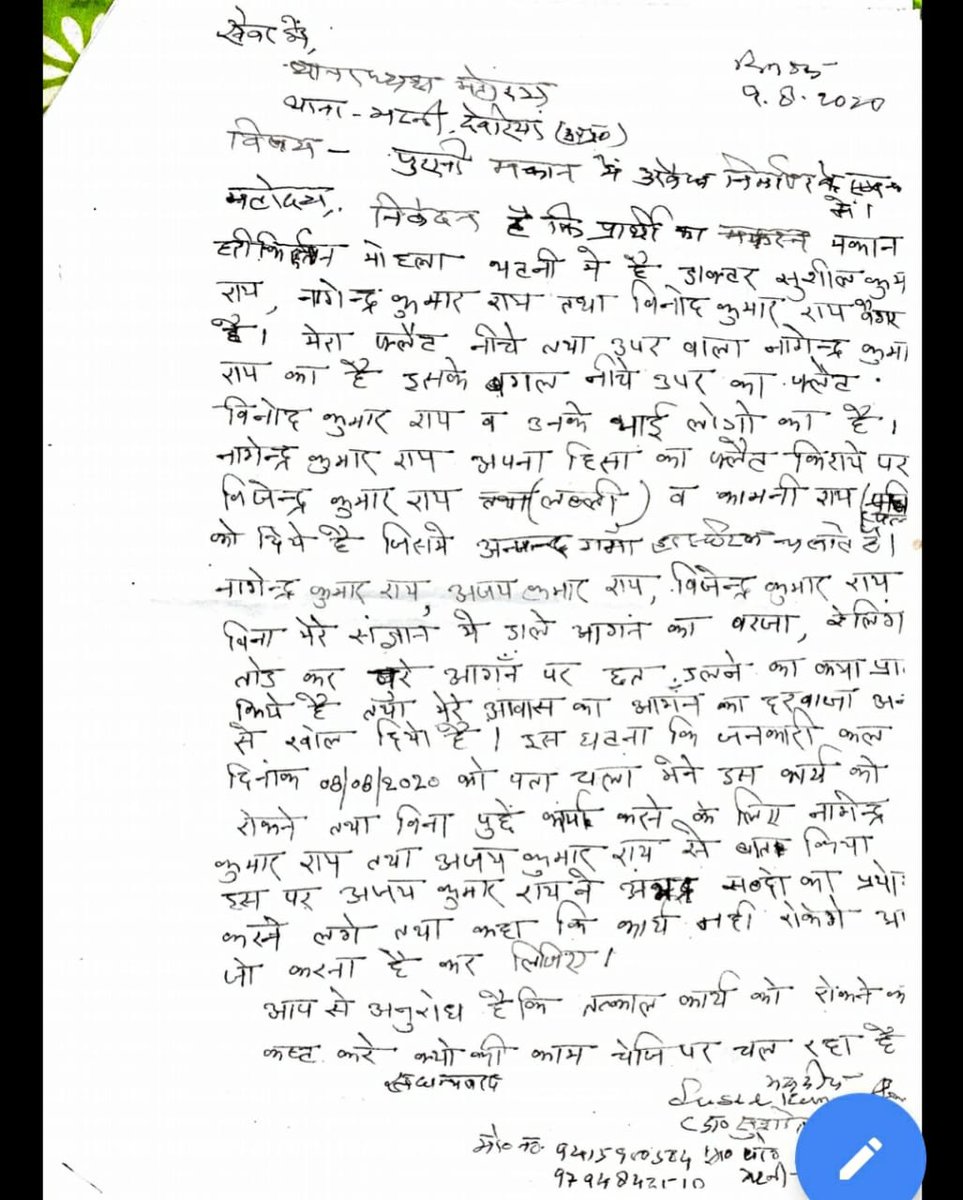 सेवा में,
थानाध्यक्ष महोदय
दिनांक-
9.8.2020
थाना - भटनी, देवरिया (उ०प्र०)
विषय - पुस्तैनी मकान में अवैध निर्माण के सम्बन्ध
में।
महोदय, निवेदन है कि प्रार्थी का मकान
मोहला भटनी मे है डाक्टर सुशील कुमा
राय, नागेन्द्र कुमार राय तथा विनोद कुमार राय
है। मेरा फ्लैट नीचे तथा उपर वाला नागेन्द्र कुमा
राय का है इसके बगल नीचे उपर का फ्लैट
विनोद कुमार राय व उनके भाई लोगो का है।
नागेन्द्र कुमार राय अपना हिसा का फ्लैट किराये पर
विजेन्द्र कुमार राय तथा (लल्ली) व कामनी राय
को दिये है जिसमे चलाते है।
नागेन्द्र कुमार राय, अजय कुमार राय, विजेन्द्र कुमार राय
बिना मेरे संज्ञान मे डाले आगन का दरजा, रेलिंग
तोड कर आगन पर छत डालने का प्रा
किये है तथा मेरे आवास का आगन का दरवाजा अ
से खोल दिये है। इस घटना कि जनकारी कल
दिनांक 08/08/2020 को पता चला मेने इस कार्य को
रोकने तथा बिना पुछे कार्य करने के लिए नागेन्द्र
कुमार राय तथा अजय कुमार राय से बात किया
इस पर अजय कुमार राय ने अभद्र सब्दो का प्रयो
करने लगे तथा कहा कि कार्य नही रोकेगे आ
जो करना है कर लिजिए।
आप से अनुरोध है कि तत्काल कार्य को रोकने क
कष्ट करे क्यो की काम तेजि पर चल रहा है
सधन्यवाद
भवदीय
मो० न०